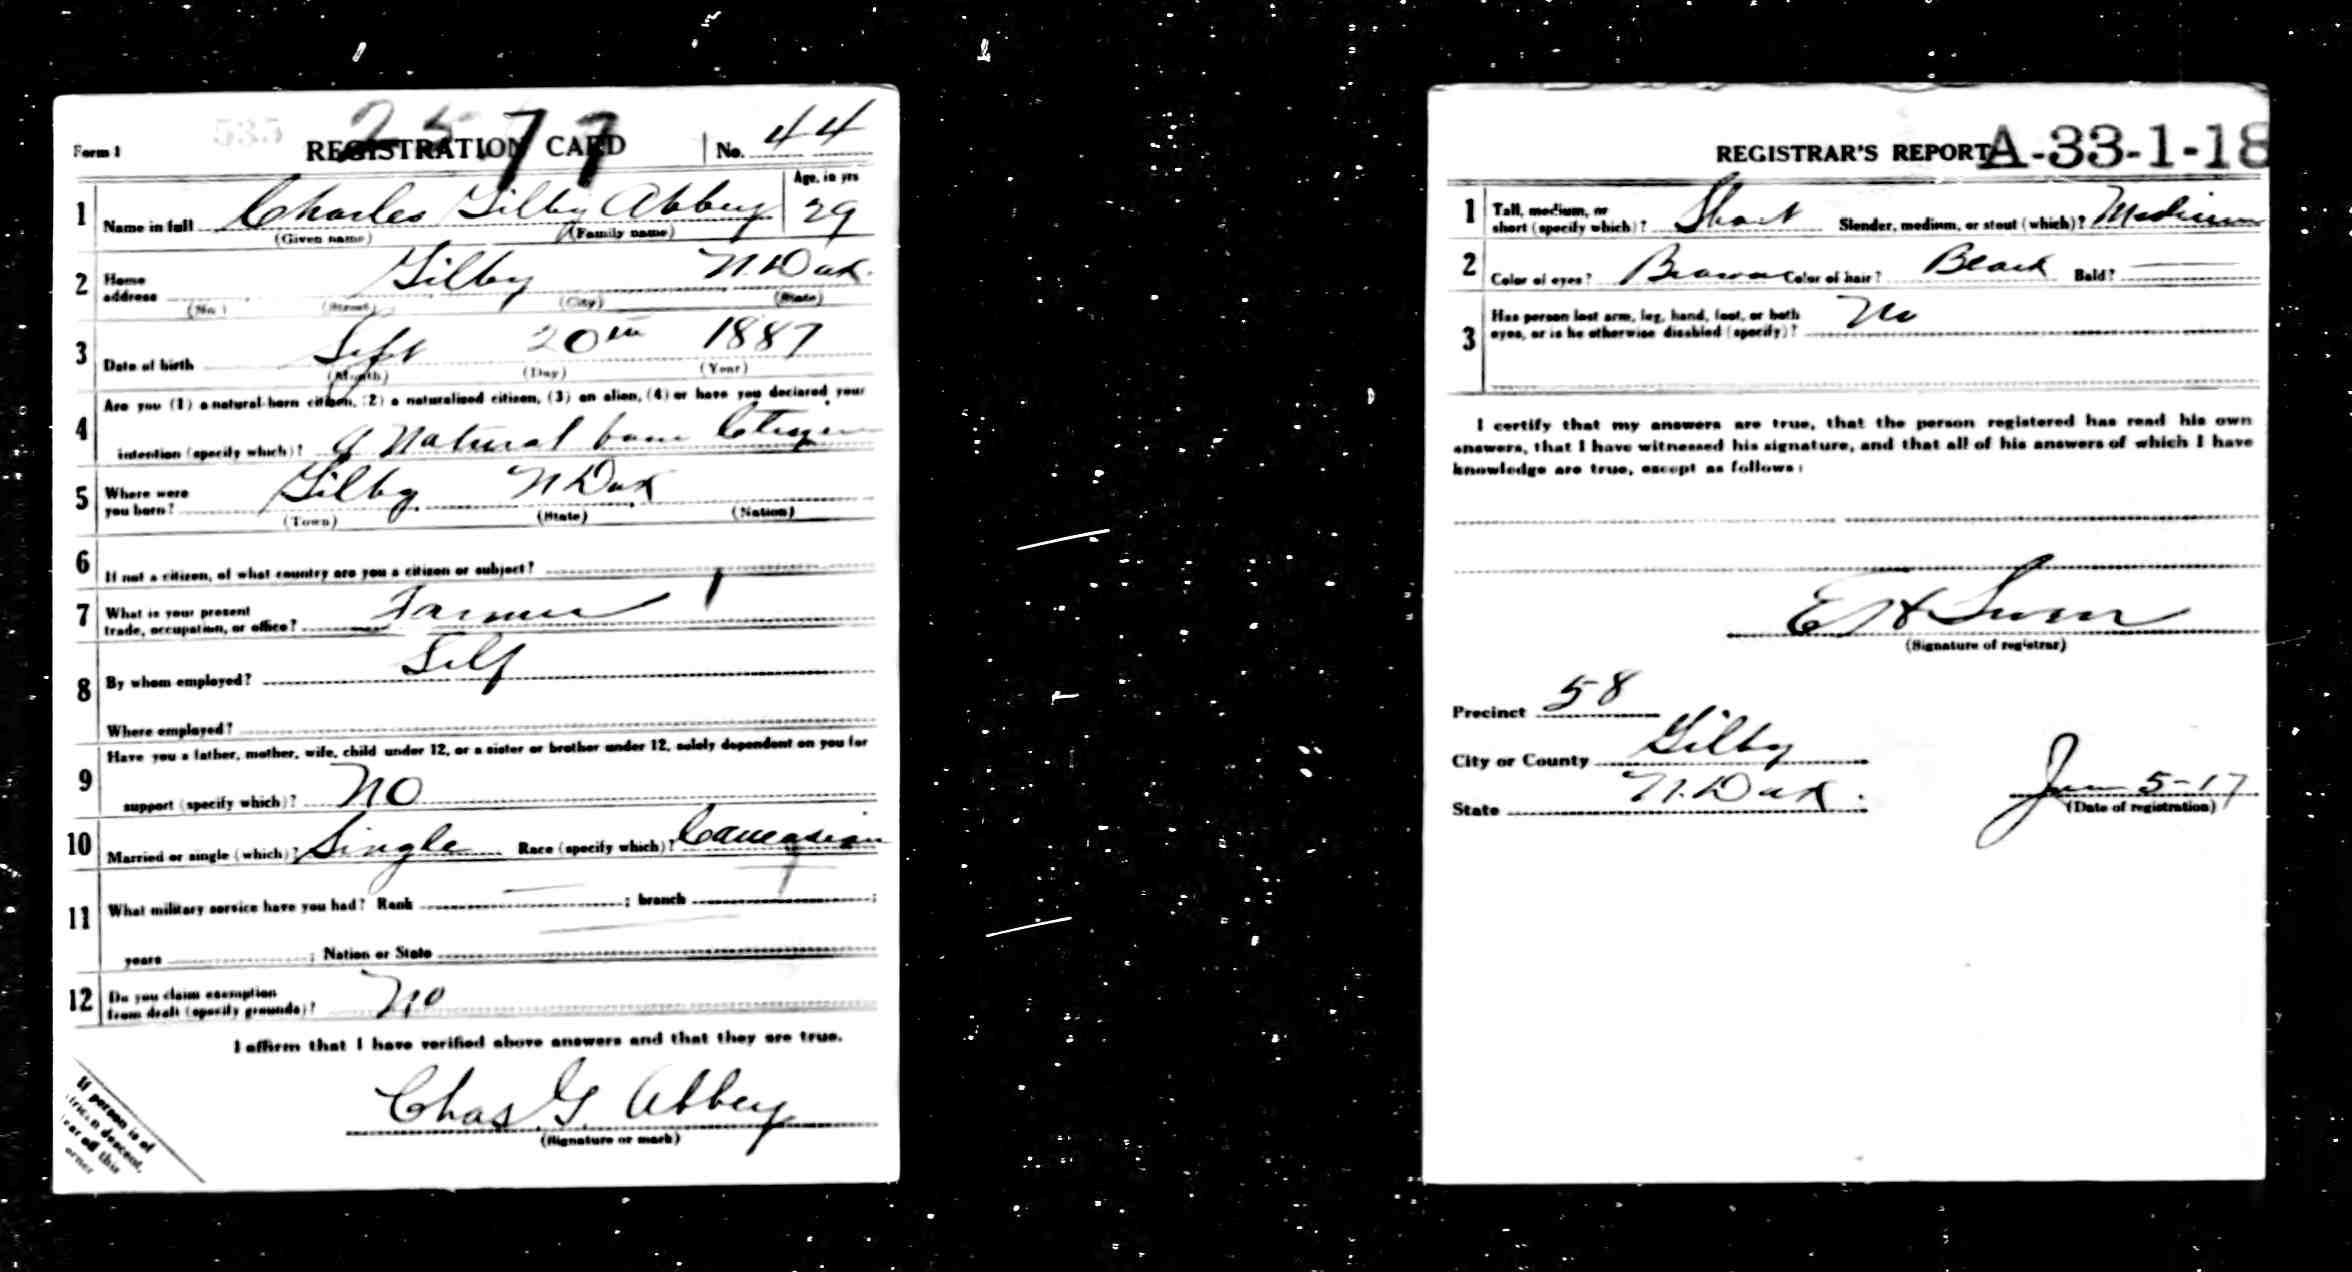 Form 1
535
2577
REGISTRATION CARD
No. 44
1 Name in full Charles Gilby Abbey
Age, in yrs 29
(Given name) (Family name)
2 Home address Gilby N. Dak.
(No.) (Street) (City) (State)
3 Date of birth Sept 20th 1887
(Month) (Day) (Year)
4 Are you (1) a natural-born citizen, (2) a naturalized citizen, (3) an alien, (4) or have you declared your
intention (specify which)? A Natural born Citizen
5 Where were you born? Gilby N Dak
(Town) (State) (Nation)
6 If not a citizen, of what country are you a citizen or subject?
7 What is your present trade, occupation, or office? Farmer
8 By whom employed? Self
Where employed?
9 Have you a father, mother, wife, child under 12, or a sister or brother under 12, solely dependent on you for
support (specify which)? NO
10 Married or single (which)? Single Race (specify which)? Caucasian
11 What military service have you had? Rank ; branch ;
years ; Nation or State
12 Do you claim exemption from draft (specify grounds)? No
I affirm that I have verified above answers and that they are true.
Chas. G. Abbey
(Signature or mark)
If person is of
descent,
off this
corner
REGISTRAR'S REPORT A-33-1-18
1 Tall, medium, or short (specify which)? Short Slender, medium, or stout (which)? Medium
2 Color of eyes? Brown Color of hair? Black Bald? —
3 Has person lost arm, leg, hand, foot, or both
eyes, or is he otherwise disabled (specify)? No
I certify that my answers are true, that the person registered has read his own
answers, that I have witnessed his signature, and that all of his answers of which I have
knowledge are true, except as follows:
E H
(Signature of registrar)
Precinct 58
City or County Gilby
State N. Dak.
Jun 5-17
(Date of registration)